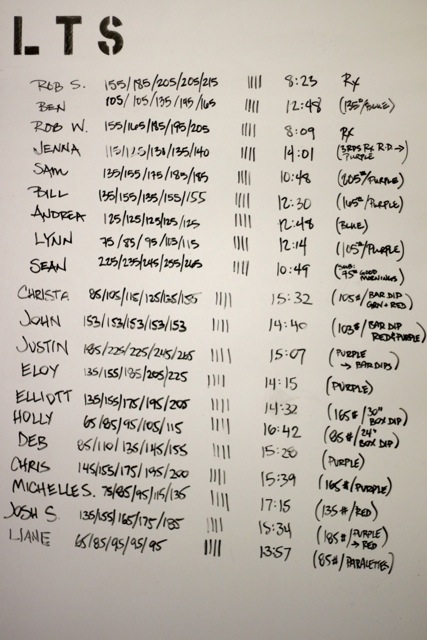 LTS
ROB S. 155/185/205/205/215 |||| 8:23 Rx
BEN 105/105/135/195/165 |||| 12:48 (135#/BLUE)
ROB W. 155/165/185/195/205 |||| 8:09 Rx
JENNA 115/125/130/135/140 |||| 14:01 (3 RDS Rx R.D → PURPLE)
SAM 135/155/175/185/185 |||| 10:48 (205#/PURPLE)
BILL 135/155/135/155/155 |||| 12:30 (165#/PURPLE)
ANDREA 125/125/125/125/125 |||| 12:48 (BLUE)
LYNN 75/85/95/115/115 |||| 12:14 (105#/PURPLE)
SEAN 225/235/245/255/265 |||| 10:49 (SUB: 75# GOOD MORNINGS)
CHRISTA 85/105/115/125/135/155 |||| 15:32 (105#/BAR DIP GRN + RED)
JOHN 153/153/153/153/153 |||| 14:40 (103#/BAR DIP RED & PURPLE)
JUSTIN 185/225/225/245/265 |||| 15:07 (PURPLE → BAR DIPS)
ELOY 135/155/185/205/225 |||| 14:15 (PURPLE)
ELLIOTT 135/155/175/195/205 |||| 14:32 (165#/30" BOX DIP)
HOLLY 65/85/95/105/115 |||| 16:42 (85#/24" BOX DIP)
DEB 85/110/135/145/155 |||| 15:28 (PURPLE)
CHRIS 145/155/175/195/200 |||| 15:39 (165#/PURPLE)
MICHELLE S. 75/85/95/115/135 |||| 17:15 (135#/RED)
JOSH S. 135/155/165/175/185 |||| 15:34 (185#/PURPLE → RED)
LIANE 65/85/95/95/95 |||| 13:57 (85#/PARALETTES)